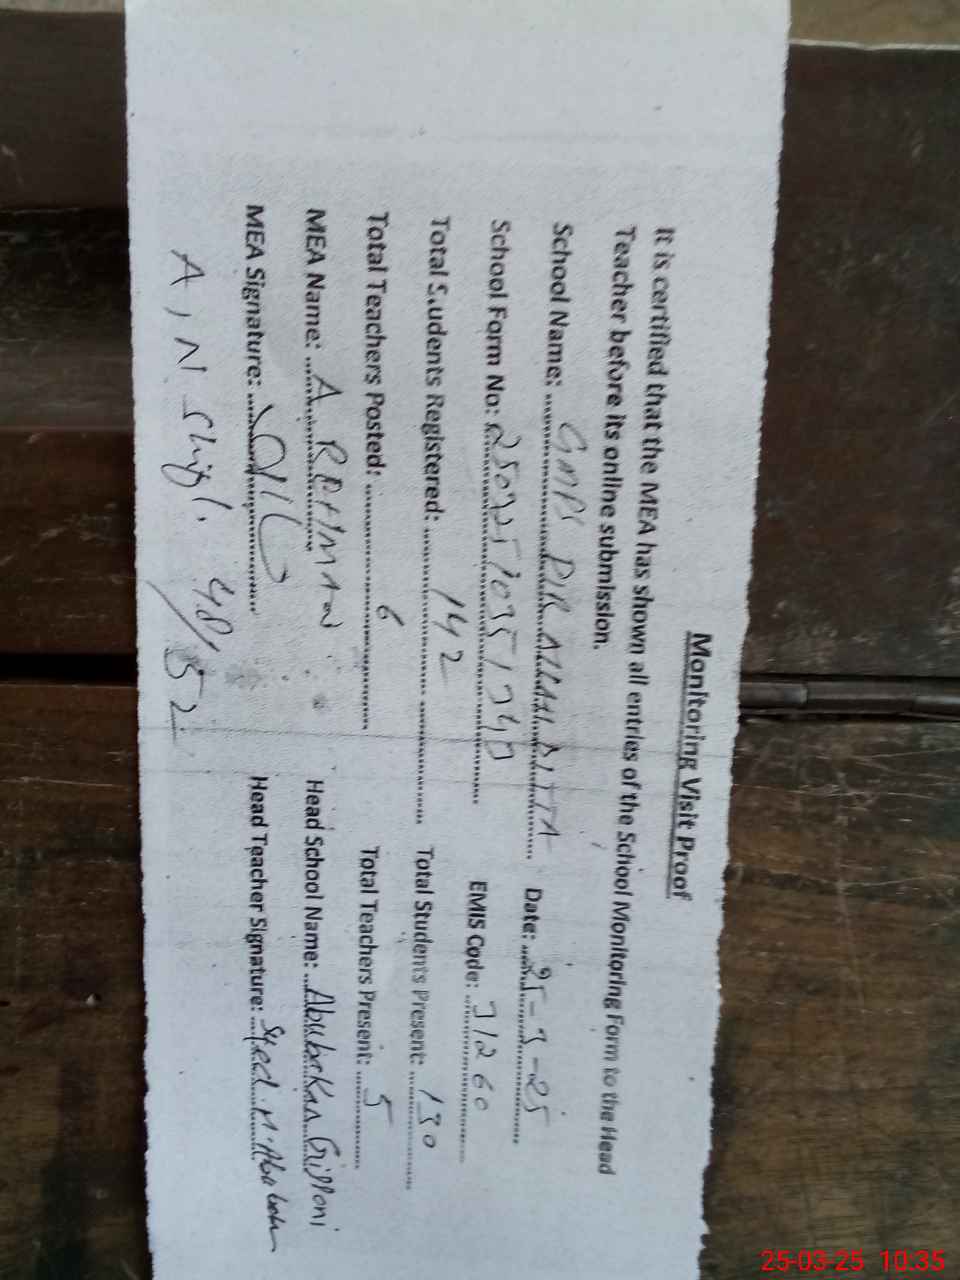 Monitoring Visit Proof
It is certified that the MEA has shown all entries of the School Monitoring Form to the Head
Teacher before its online submission.
School Name: GMPS PIR ALLAH DITTA Date: 25-3-25
School Form No: EMIS Code: 31260
Total Students Registered: 142 Total Students Present: 130
Total Teachers Posted: 6 Total Teachers Present: 5
MEA Name: A REHMAN Head School Name: Abubakar Gilloni
MEA Signature: Head Teacher Signature: Syed M. Abubakr
A, N 48/52
25-03-25 10:35